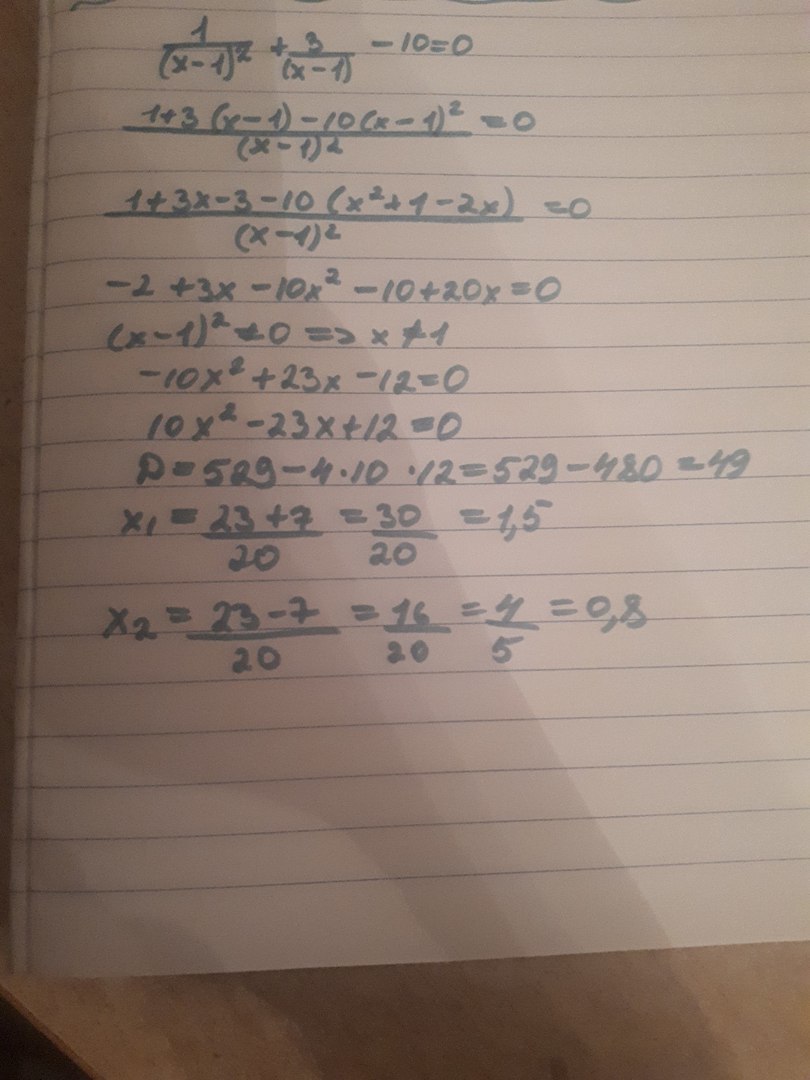 1/(x-1)² + 3/(x-1) - 10=0
(1+3(x-1)-10(x-1)²)/(x-1)² =0
(1+3x-3-10(x²+1-2x))/(x-1)² =0
-2+3x-10x²-10+20x=0
(x-1)²≠0 => x≠1
-10x²+23x-12=0
10x²-23x+12=0
D=529-4·10·12=529-480=49
x₁ = (23+7)/20 = 30/20 =1,5
x₂ = (23-7)/20 = 16/20 = 4/5 = 0,8